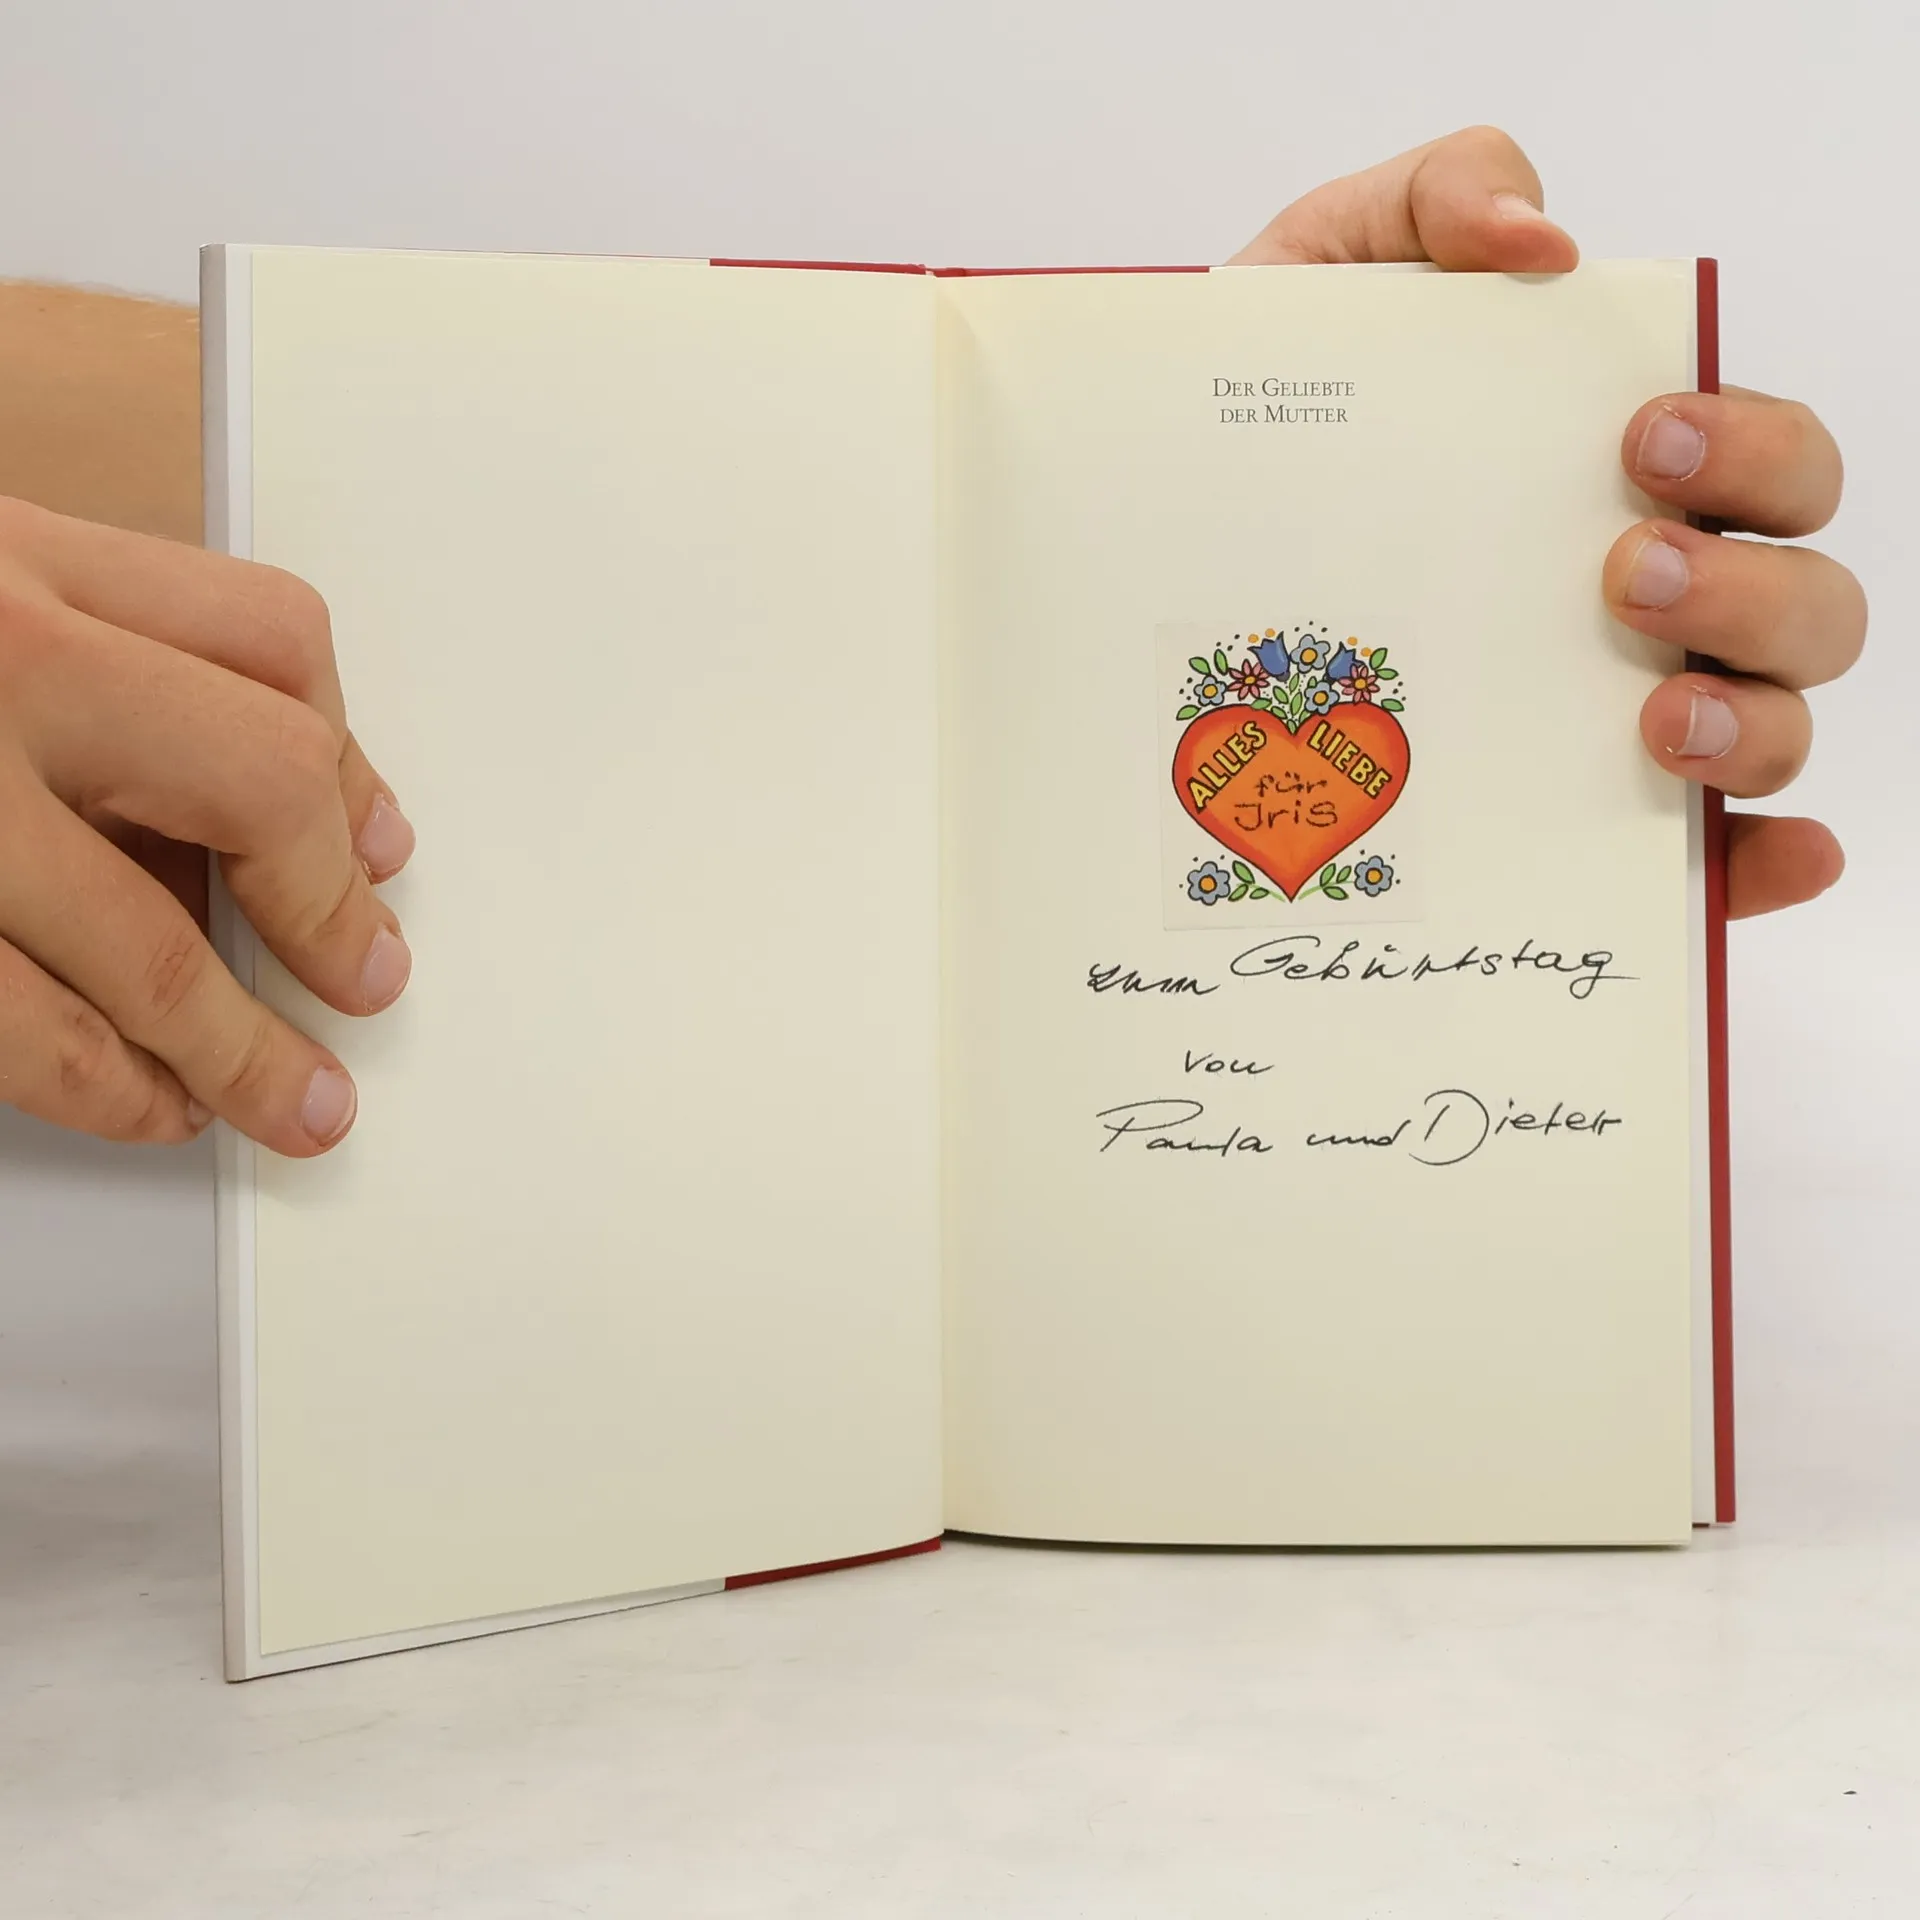 DER GELIEBTE
DER MUTTER
ALLES LIEBE
für
Jris
zum Geburtstag
von
Paula und Dieter